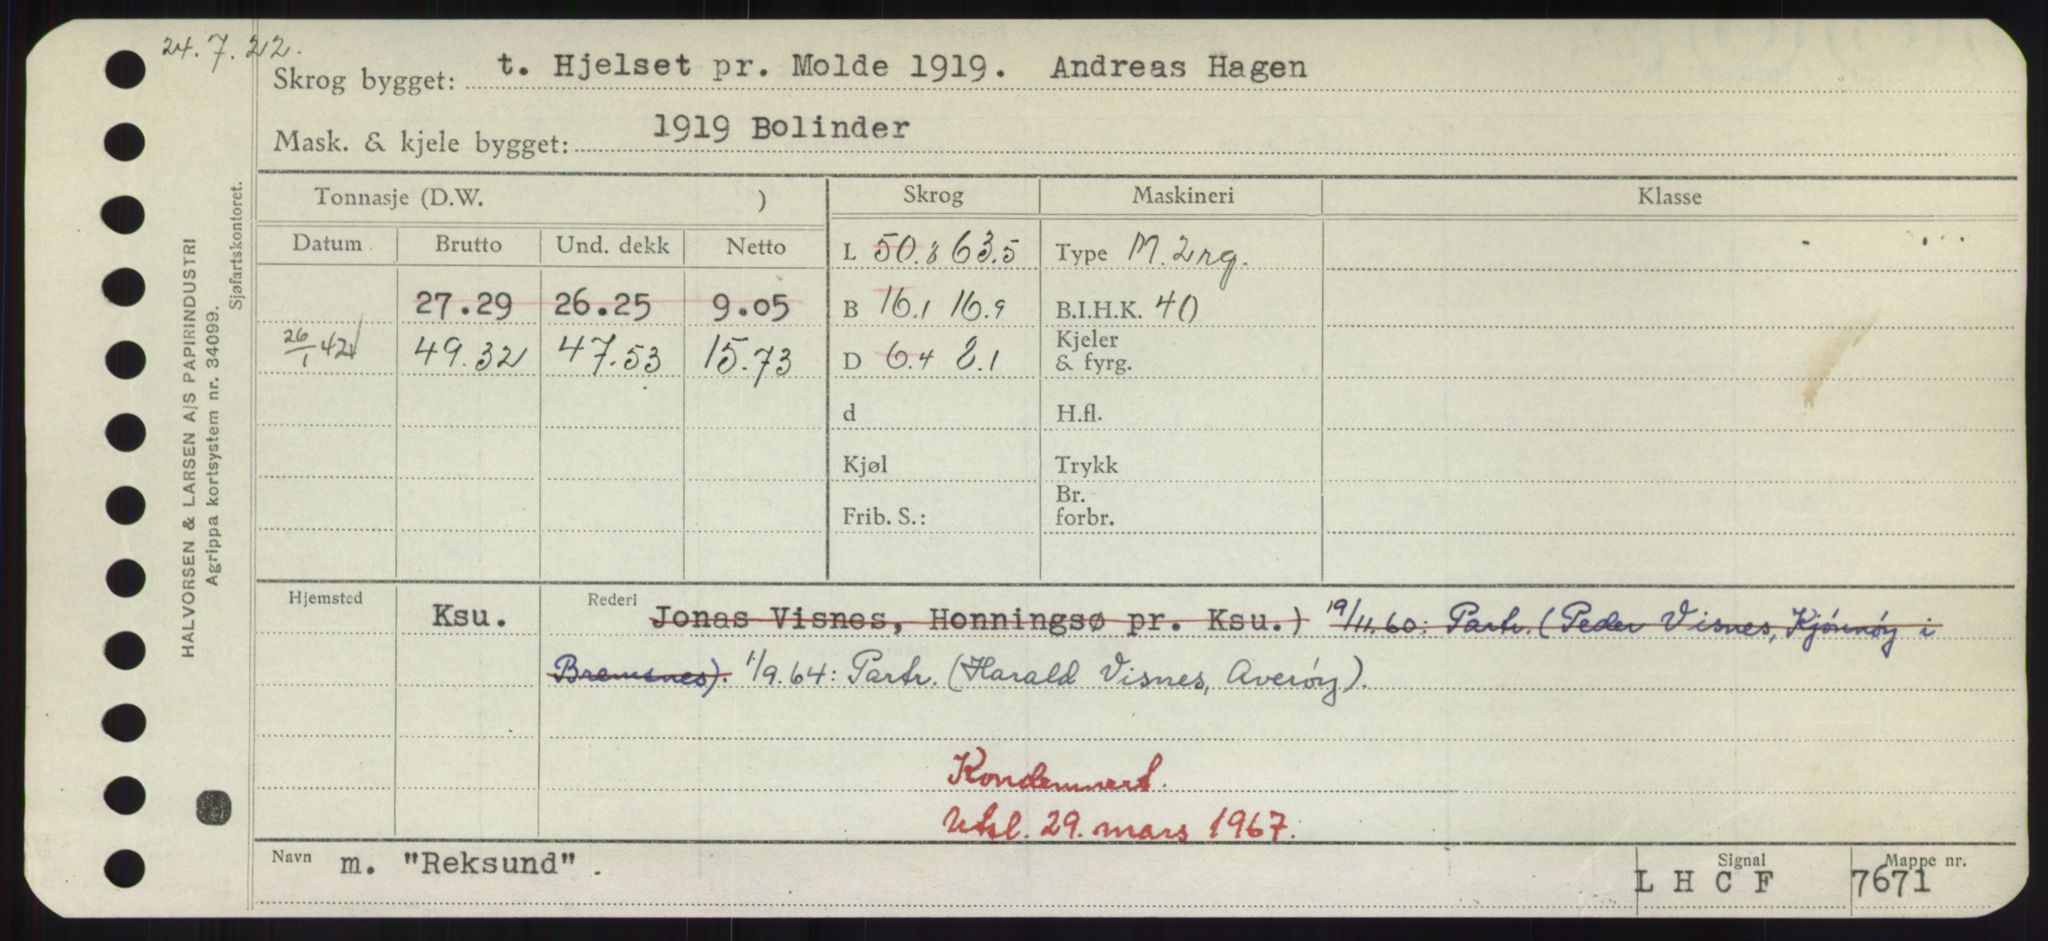 24.7.22.
Skrog bygget: t. Hjelset pr. Molde 1919. Andreas Hagen
Mask. & kjele bygget: 1919 Bolinder
HALVORSEN & LARSEN A/S PAPIRINDUSTRI
Agrippa kortsystem nr. 34099.
Sjøfartskontoret.
Tonnasje (D.W. ) Skrog Maskineri Klasse
Datum Brutto Und. dekk Netto
L 50.8 63.5 Type M. 2 rg.
27.29 26.25 9.05 B 16.1 16.9 B.I.H.K. 40
26/1 42 49.32 47.53 15.73 D 6.4 8.1 Kjeler & fyrg.
d H.fl.
Kjøl Trykk
Frib. S.: Br. forbr.
Hjemsted Ksu. Rederi Jonas Visnes, Honningsø pr. Ksu.) 19/11.60: Partr. (Peder Visnes, Kjönnöy i
Bremsnes). 1/9.64: Partr. (Harald Visnes, Averöy).
Kondemnert.
Utsl. 29. mars 1967.
Navn m. "Reksund". Signal L H C F Mappe nr. 7671